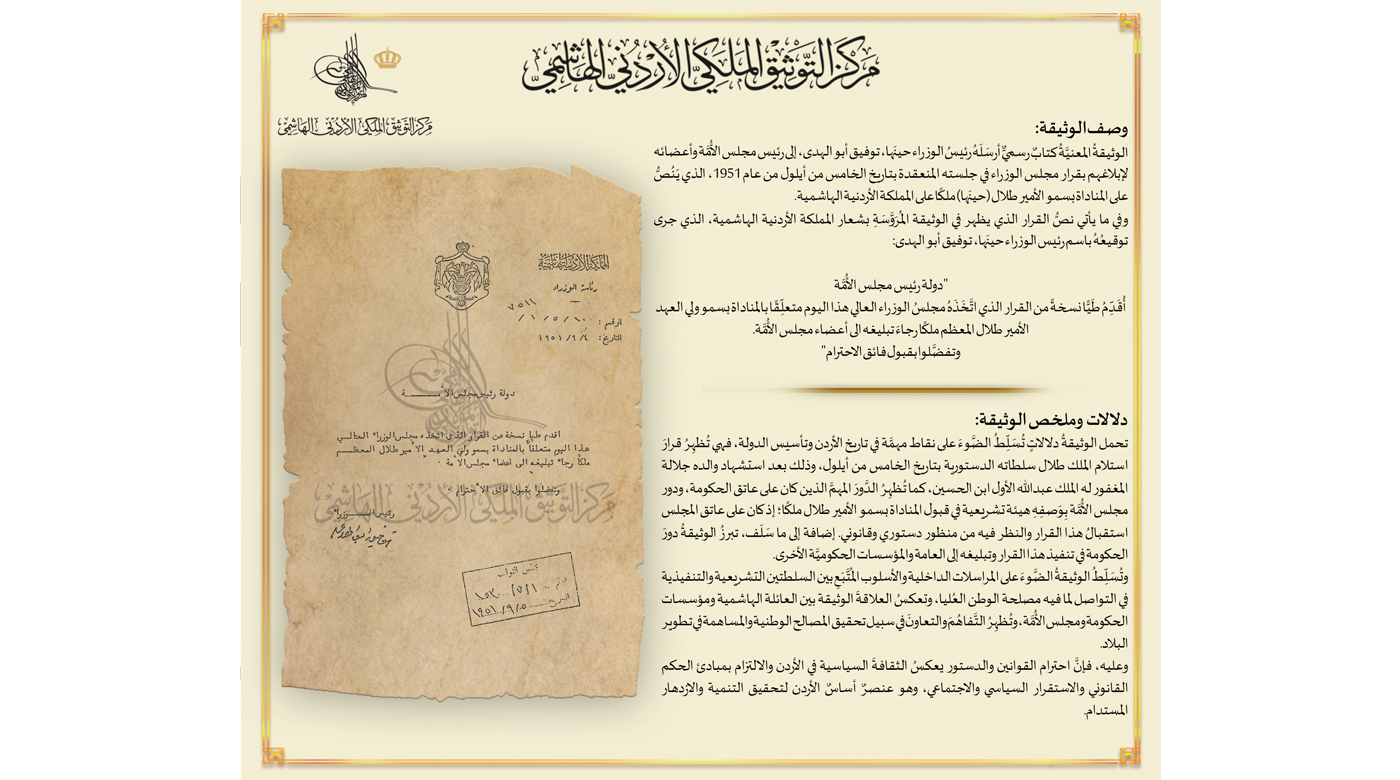 مركز التوثيق الملكي الأردني الهاشمي
مركز التوثيق الملكي الأردني الهاشمي
وصف الوثيقة:
الوثيقةُ المعنيَّةُ كتابٌ رسميٌّ أرسَلَهُ رئيسُ الوزراء حينَها، توفيق أبو الهدى، إلى رئيس مجلس الأُمَّة وأعضائه
لإبلاغهم بقرار مجلس الوزراء في جلسته المنعقدة بتاريخ الخامس من أيلول من عام 1951، الذي يَنُصُّ
على المناداة بسمو الأمير طلال (حينَها) ملكًا على المملكة الأردنية الهاشمية.
وفي ما يأتي نصُّ القرار الذي يظهر في الوثيقة المُرَوَّسَةِ بشعار المملكة الأردنية الهاشمية، الذي جرى
توقيعُهُ باسم رئيس الوزراء حينَها، توفيق أبو الهدى:
"دولة رئيس مجلس الأُمَّة
أُقَدِّمُ طَيًّا نسخةً من القرار الذي اتَّخَذَهُ مجلسُ الوزراء العالي هذا اليوم متعلِّقًا بالمناداة بسمو ولي العهد
الأمير طلال المعظم ملكًا رجاءَ تبليغه الى أعضاء مجلس الأُمَّة.
وتفضَّلوا بقبول فائق الاحترام"
دلالات وملخص الوثيقة:
تحمل الوثيقةُ دلالاتٍ تُسَلِّطُ الضَّوءَ على نقاط مهمَّة في تاريخ الأردن وتأسيس الدولة، فهي تُظهِرُ قرارَ
استلام الملك طلال سلطاته الدستورية بتاريخ الخامس من أيلول، وذلك بعد استشهاد والده جلالة
المغفور له الملك عبدالله الأول ابن الحسين، كما تُظهِرُ الدَّورَ المهمَّ الذين كان على عاتق الحكومة، ودور
مجلس الأُمَّة بِوَصفِهِ هيئة تشريعية في قبول المناداة بسمو الأمير طلال ملكًا؛ إذ كان على عاتق المجلس
استقبالُ هذا القرار والنظر فيه من منظور دستوري وقانوني. إضافة إلى ما سَلَف، تبرزُ الوثيقةُ دورَ
الحكومة في تنفيذ هذا القرار وتبليغه إلى العامة والمؤسسات الحكوميَّة الأخرى.
وتُسَلِّطُ الوثيقةُ الضَّوءَ على المراسلات الداخلية والأسلوب المُتَّبَعِ بين السلطتين التشريعية والتنفيذية
في التواصل لما فيه مصلحة الوطن العُليا، وتعكسُ العلاقةَ الوثيقة بين العائلة الهاشمية ومؤسسات
الحكومة ومجلس الأُمَّة، وتُظهِرُ التَّفاهُمَ والتعاونَ في سبيل تحقيق المصالح الوطنية والمساهمة في تطوير
البلاد.
وعليه، فإنَّ احترام القوانين والدستور يعكسُ الثقافةَ السياسية في الأردن والالتزام بمبادئ الحكم
القانوني والاستقرار السياسي والاجتماعي، وهو عنصرٌ أساسٌ الأردن لتحقيق التنمية والازدهار
المستدام.
المملكة الأردنية الهاشمية
رئاسة الوزراء
الرقم :
التاريخ : ١٩٥١/٩/
دولة رئيس مجلس الأمـــــة
اقدم طيا نسخة من القرار الذي اتخذه مجلس الوزراء العالي
هذا اليوم متعلقاً بالمناداة بسمو ولي العهد الأمير طلال المعظم
ملكاً رجاء تبليغه الى اعضاء مجلس الأمة .
وتفضلوا بقبول فائق الاحترام .
مركز التوثيق الملكي الأردني الهاشمي
رئيس الوزراء
مجلس النواب
الرقم
التاريخ ١٩٥١/٩/٥